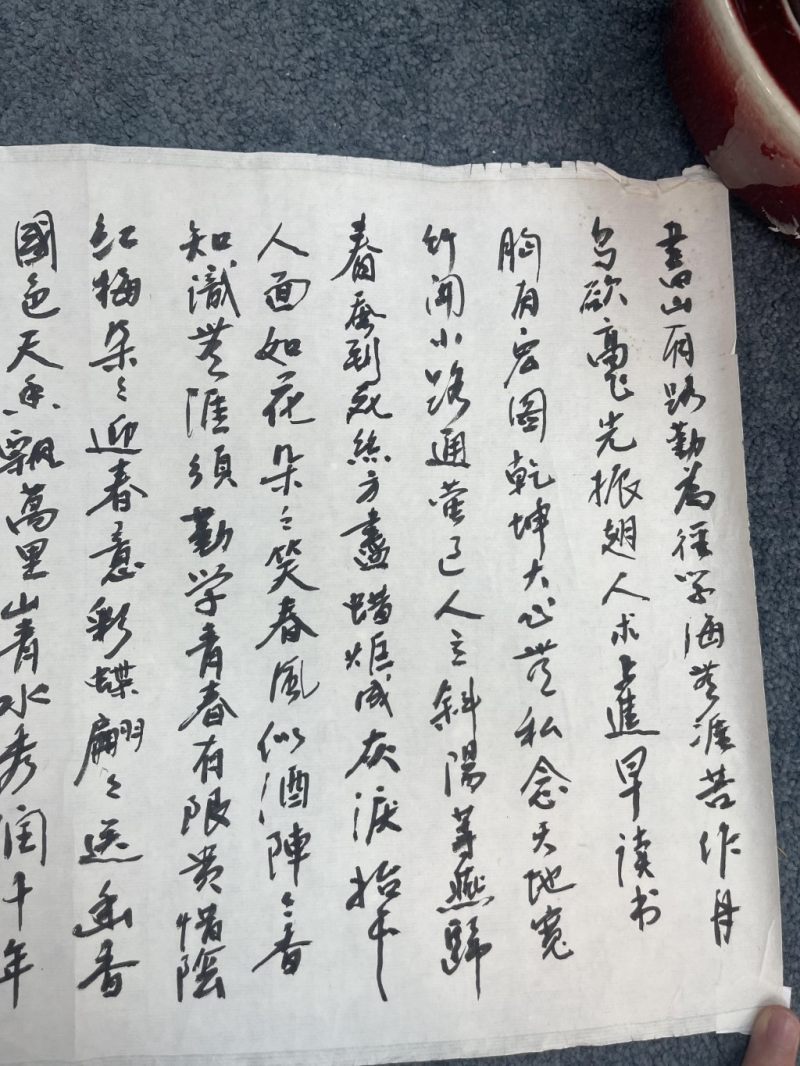 書山有路勤為徑学海無涯苦作舟
鸟欲高飞先振翅人求上進早读书
胸有宏图乾坤大心無私念天地寬
竹開小路通営已人立斜陽等燕歸
春蚕到死絲方盡蜡炬成灰淚始干
人面如花朵々笑春風似酒陣々香
知識無涯須勤学青春有限贵惜陰
紅梅朵々迎春意彩蝶翩々送幽香
國色天香飄萬里山青水秀润千年